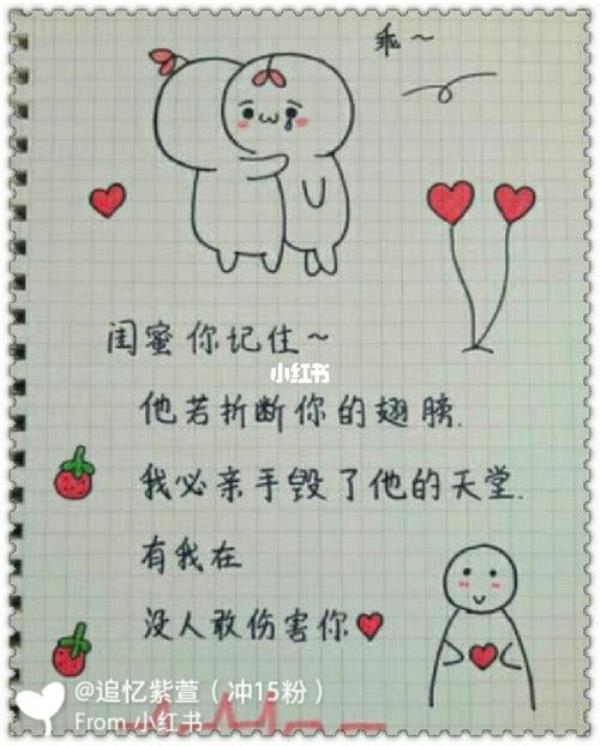 乖～
闺蜜你记住～
小红书
他若折断你的翅膀.
我必亲手毁了他的天堂.
有我在
没人敢伤害你
@追忆紫萱（冲15粉）
From 小红书